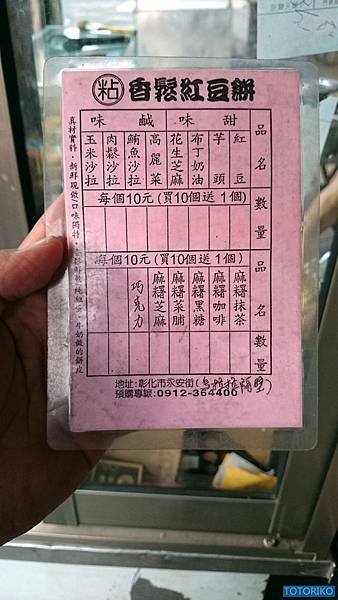 粘 香鬆紅豆餅
甜味 鹹味
品名
紅豆
芋頭
布丁奶油
花生芝麻
高麗菜
鮪魚沙拉
肉鬆沙拉
玉米沙拉
每個10元(買10個送1個)
數量
每個10元(買10個送1個)
品名
麻糬抹茶
麻糬咖啡
麻糬黑糖
麻糬菜脯
麻糬芝麻
巧克力
數量
真材實料·新鮮現做·口味獨特
牛奶做的餅皮
地址:彰化市永安街(
隔壁)
預購專線:0912-364400
TOTORIKO